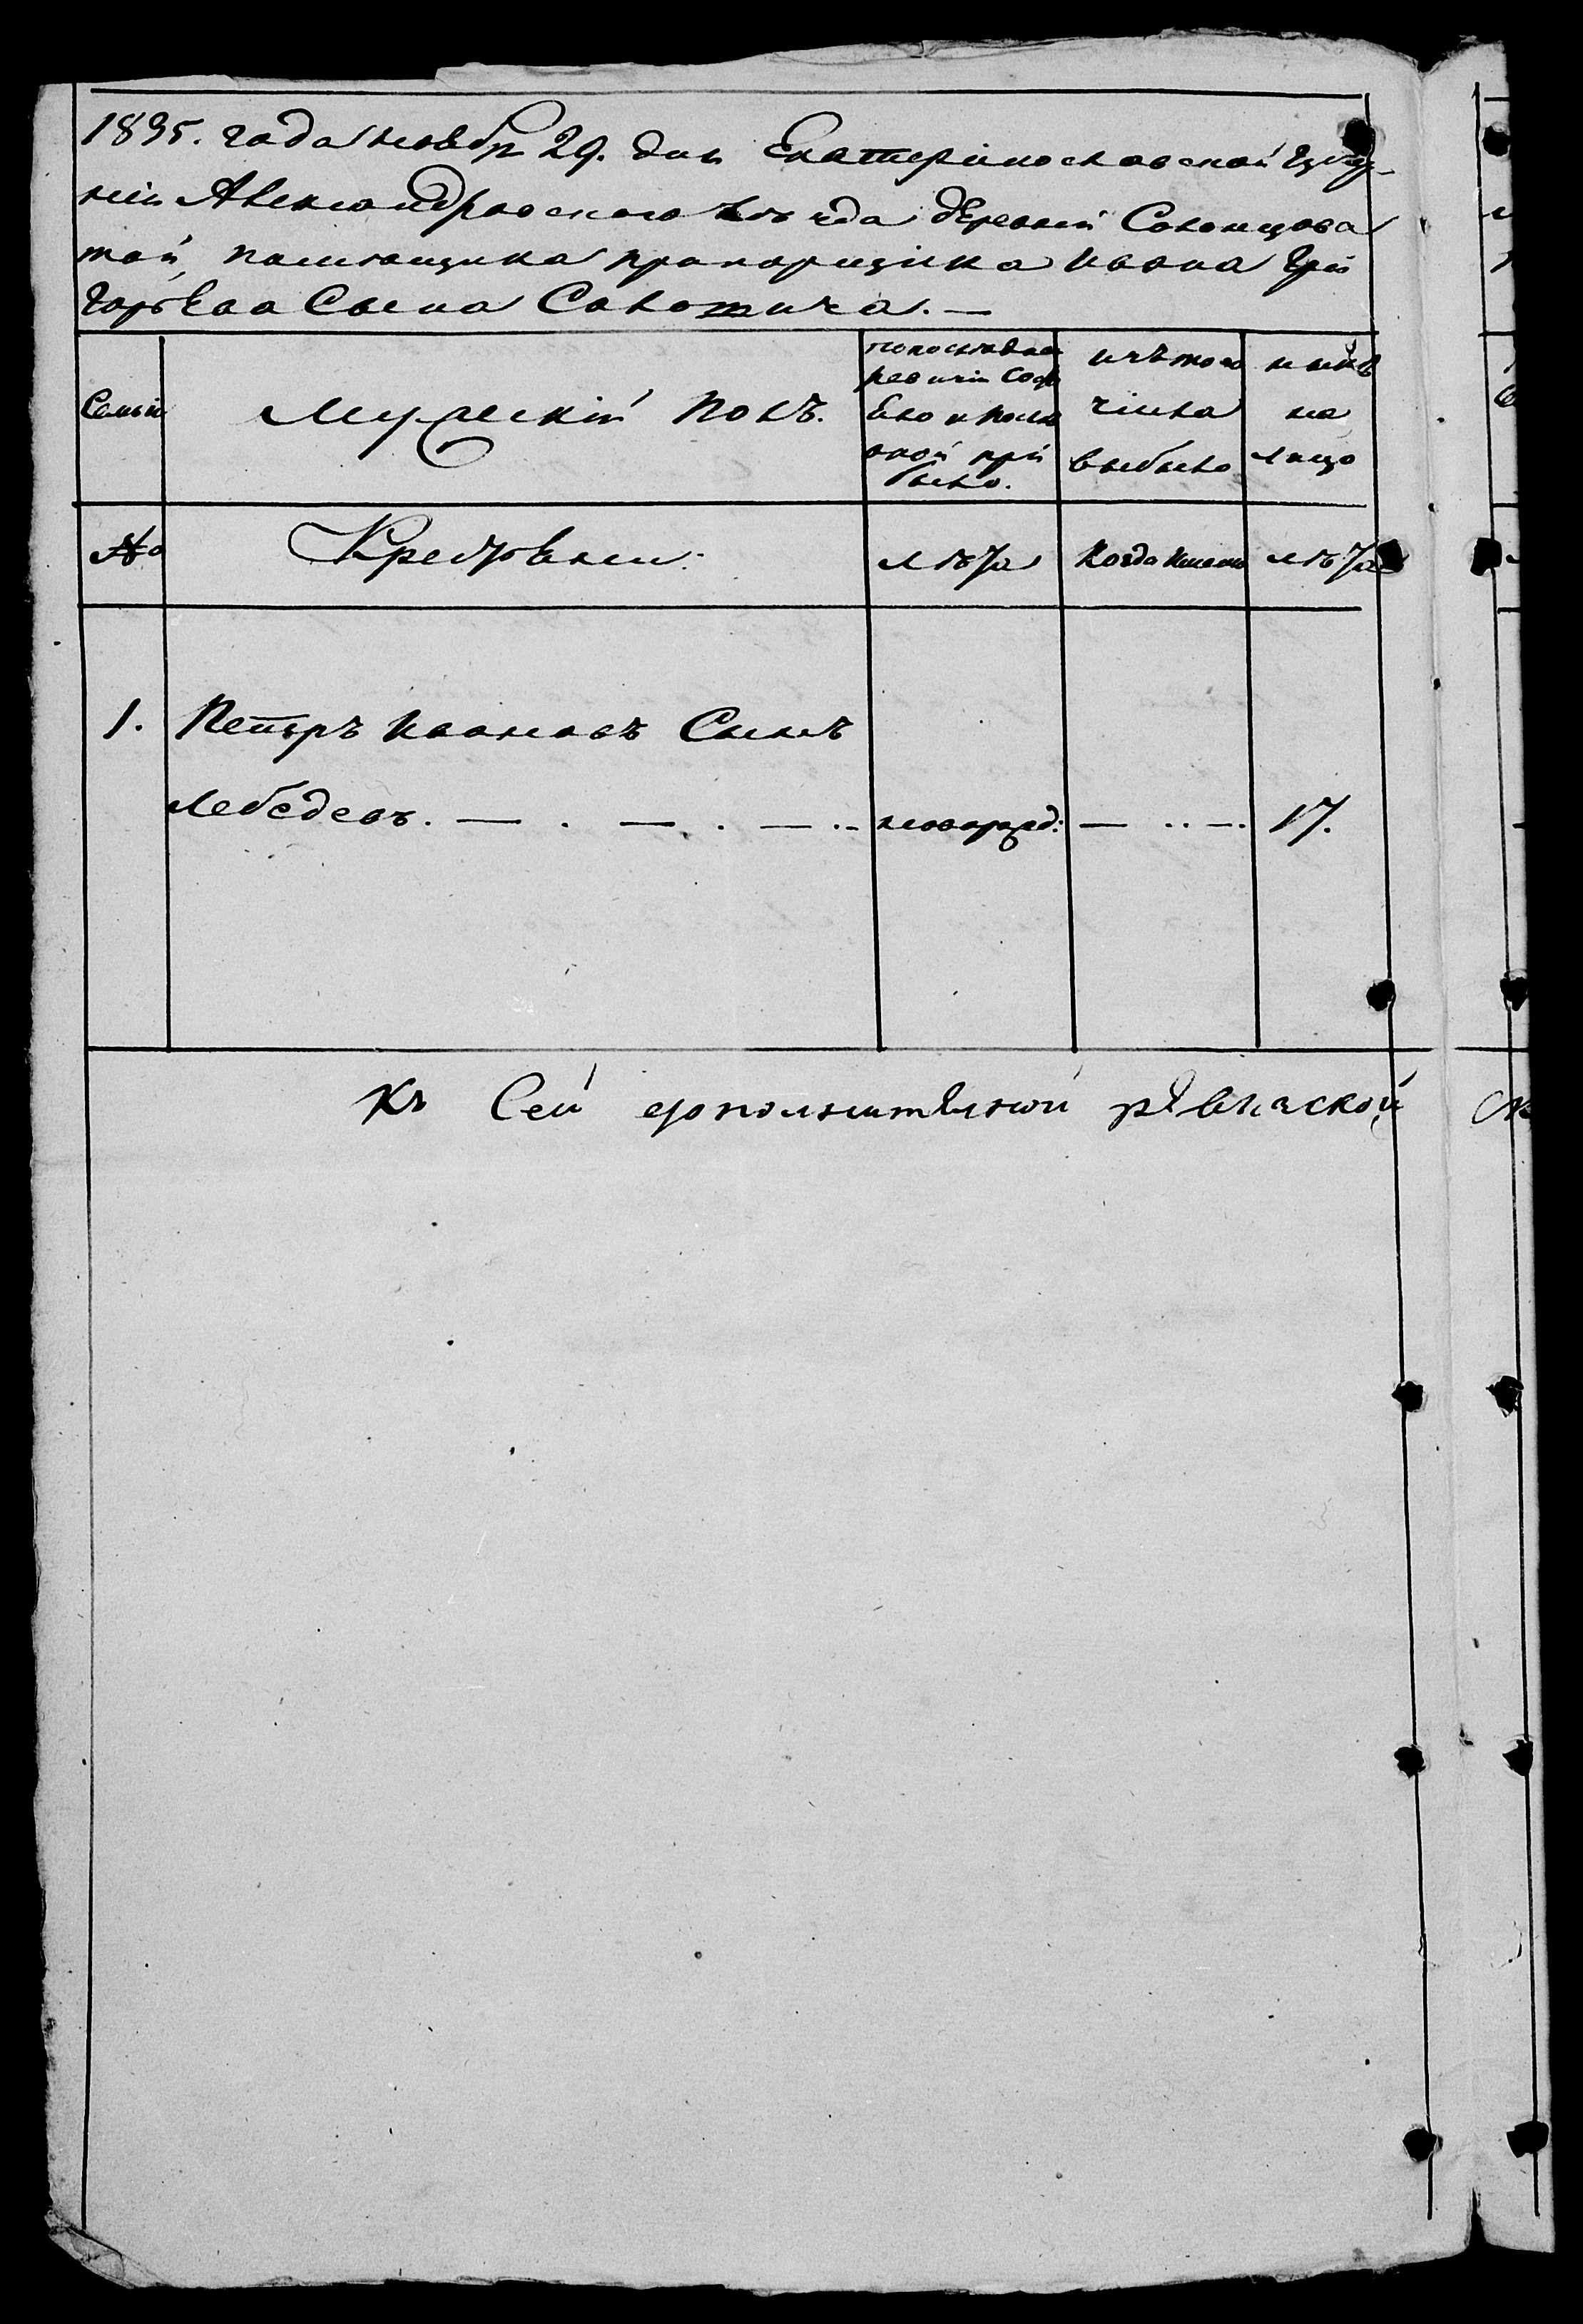 1835. года ноября 29. дня Екатеринословской Губер-
ніи Александровского уезда деревни Солонцова
той, помещика прапорщика Ивана Гри
горьева Сына
Семьи
Мужескій полъ.
по последней
ревизіи состо
яло и после
оной при
было.
изъ того
числа
выбыло
ныне
на
лицо
№
Крестьяне.
лѣта
Когда имено
лѣта
1.
Петръ Ивановъ Сынъ
Лебедевъ. — . — . — ..
— .. —.
17.
Къ Сей дополнительной ревизской